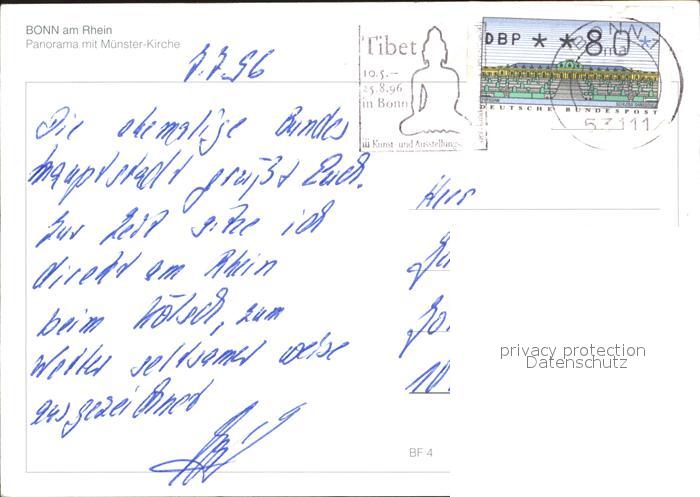 BONN am Rhein
Panorama mit Münster-Kirche
7.7.96
Tibet
10.5.–
25.8.96
in Bonn
Kunst- und Ausstellungs-
DBP * * 80
DEUTSCHE BUNDESPOST
BONN
53111
Die ehemalige Bundes
hauptstadt grüßt Euch.
Zur Zeit sitze ich
direkt am Rhein
beim Kölsch, zum
Wetter seltsamer weise
ausgezeichnet
Herr
10.
BF 4
privacy protection
Datenschutz